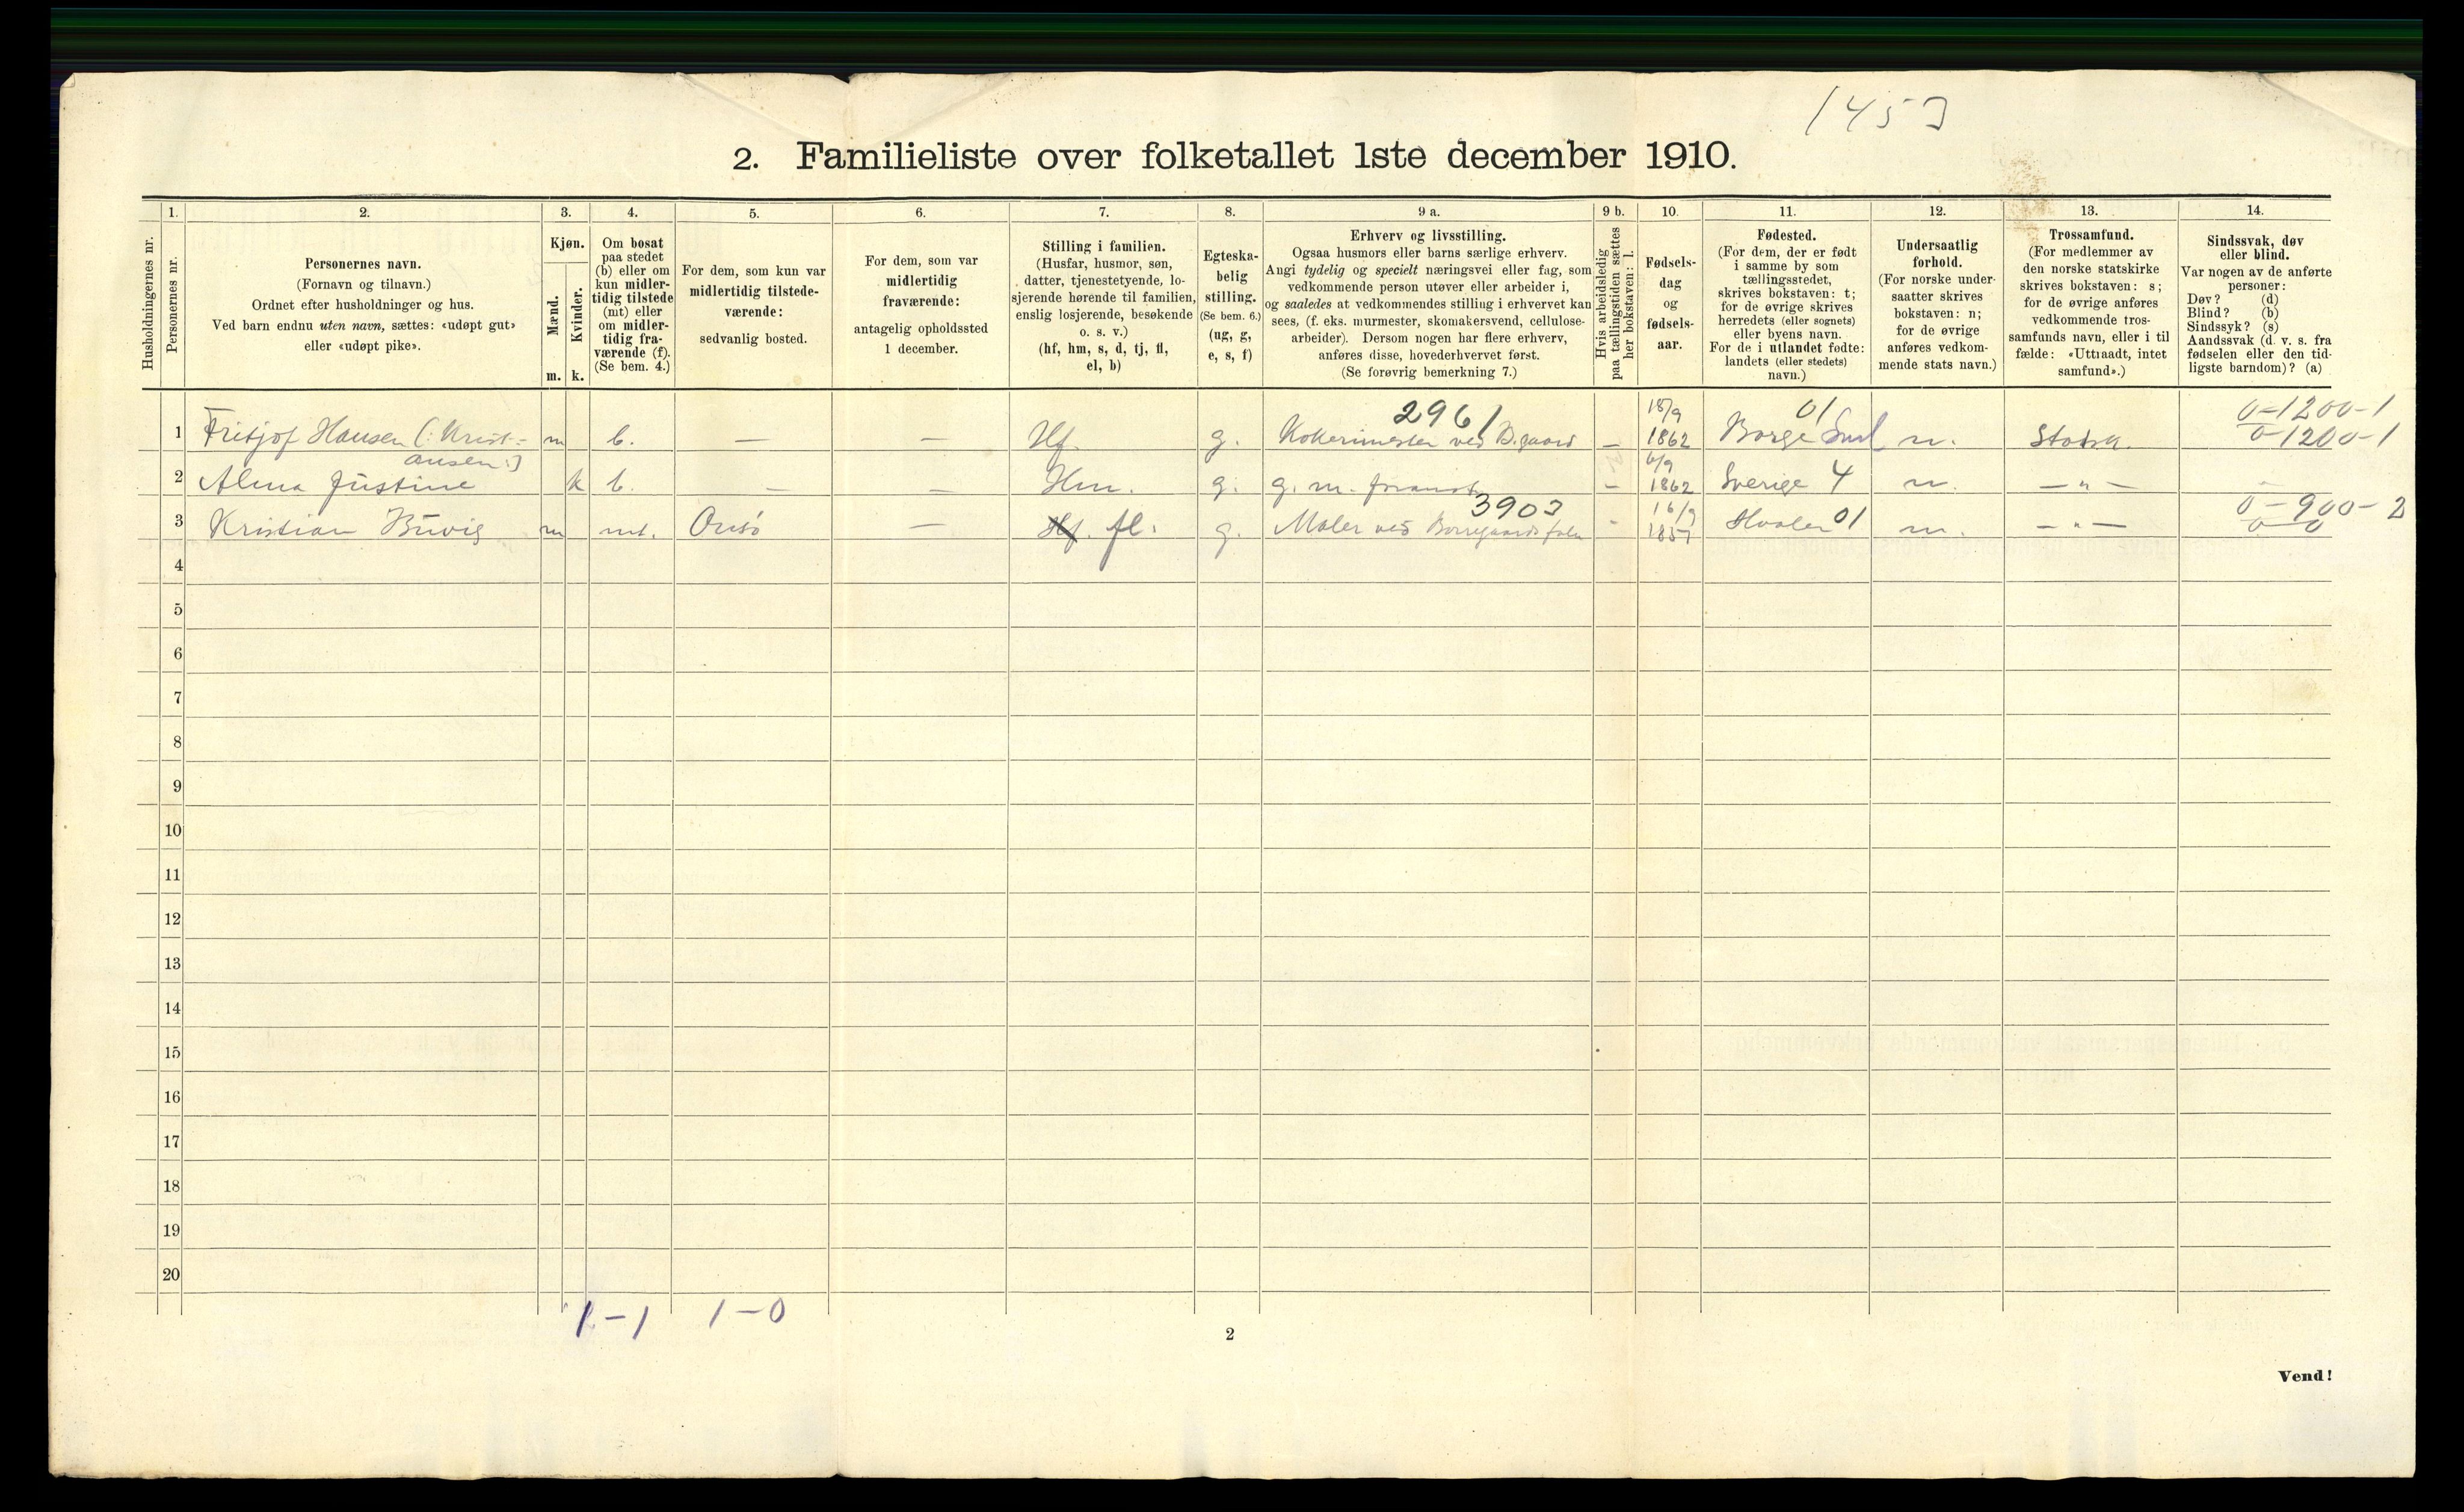 1453
2. Familieliste over folketallet 1ste december 1910.
Husholdningernes nr.
1.
Personernes nr.
2.
Personernes navn.
(Fornavn og tilnavn.)
Ordnet efter husholdninger og hus.
Ved barn endnu uten navn, sættes: «udøpt gut»
eller «udøpt pike».
3.
Kjøn.
Mænd.
Kvinder.
m. k.
4.
Om bosat
paa stedet
(b) eller om
kun midler-
tidig tilstede
(mt) eller
om midler-
tidig fra-
værende (f).
(Se bem. 4.)
5.
For dem, som kun var
midlertidig tilstede-
værende:
sedvanlig bosted.
6.
For dem, som var
midlertidig
fraværende:
antagelig opholdssted
1 december.
7.
Stilling i familien.
(Husfar, husmor, søn,
datter, tjenestetyende, lo-
sjerende hørende til familien,
enslig losjerende, besøkende
o. s. v.)
(hf, hm, s, d, tj, fl,
el, b)
8.
Egteska-
belig
stilling.
(Se bem. 6.)
(ug, g,
e, s, f)
9 a.
Erhverv og livsstilling.
Ogsaa husmors eller barns særlige erhverv.
Angi tydelig og specielt næringsvei eller fag, som
vedkommende person utøver eller arbeider i,
og saaledes at vedkommendes stilling i erhvervet kan
sees, (f. eks. murmester, skomakersvend, cellulose-
arbeider). Dersom nogen har flere erhverv,
anføres disse, hovederhvervet først.
(Se forøvrig bemerkning 7.)
9 b.
Hvis arbeidsledig
paa tællingstiden sættes
her bokstaven: l.
10.
Fødsels-
dag
og
fødsels-
aar.
11.
Fødested.
(For dem, der er født
i samme by som
tællingsstedet,
skrives bokstaven: t;
for de øvrige skrives
herredets (eller sognets)
eller byens navn.
For de i utlandet fødte:
landets (eller stedets)
navn.)
12.
Undersaatlig
forhold.
(For norske under-
saatter skrives
bokstaven: n;
for de øvrige
anføres vedkom-
mende stats navn.)
13.
Trossamfund.
(For medlemmer av
den norske statskirke
skrives bokstaven: s;
for de øvrige anføres
vedkommende tros-
samfunds navn, eller i til
fælde: «Uttraadt, intet
samfund».)
14.
Sindssvak, døv
eller blind.
Var nogen av de anførte
personer:
Døv? (d)
Blind? (b)
Sindssyk? (s)
Aandssvak (d. v. s. fra
fødselen eller den tid-
ligste barndom)? (a)
2961 15/9 01 0-1200-1
1 Fritjof Hansen (: Krist- m b. — — Hf. g. Kokerimester ved B.gaard — 1862 Borge n. Statsk. 0-1200-1
ansen :)
2 Alma Justine k b. — — Hm. g. g. m. foranst. — 6/9 1862 Sverige 4 n. — " —
3903 0-900-2
3 Kristian Buvig m mt. Onsö — Hf. fl. g. Maler ved Borregaards - 16/9 1857 Hvaler 01 n. — " — 0 0
4
5
6
7
8
9
10
11
12
13
14
15
16
17
18
19
20
1-1 1-0
2
Vend!